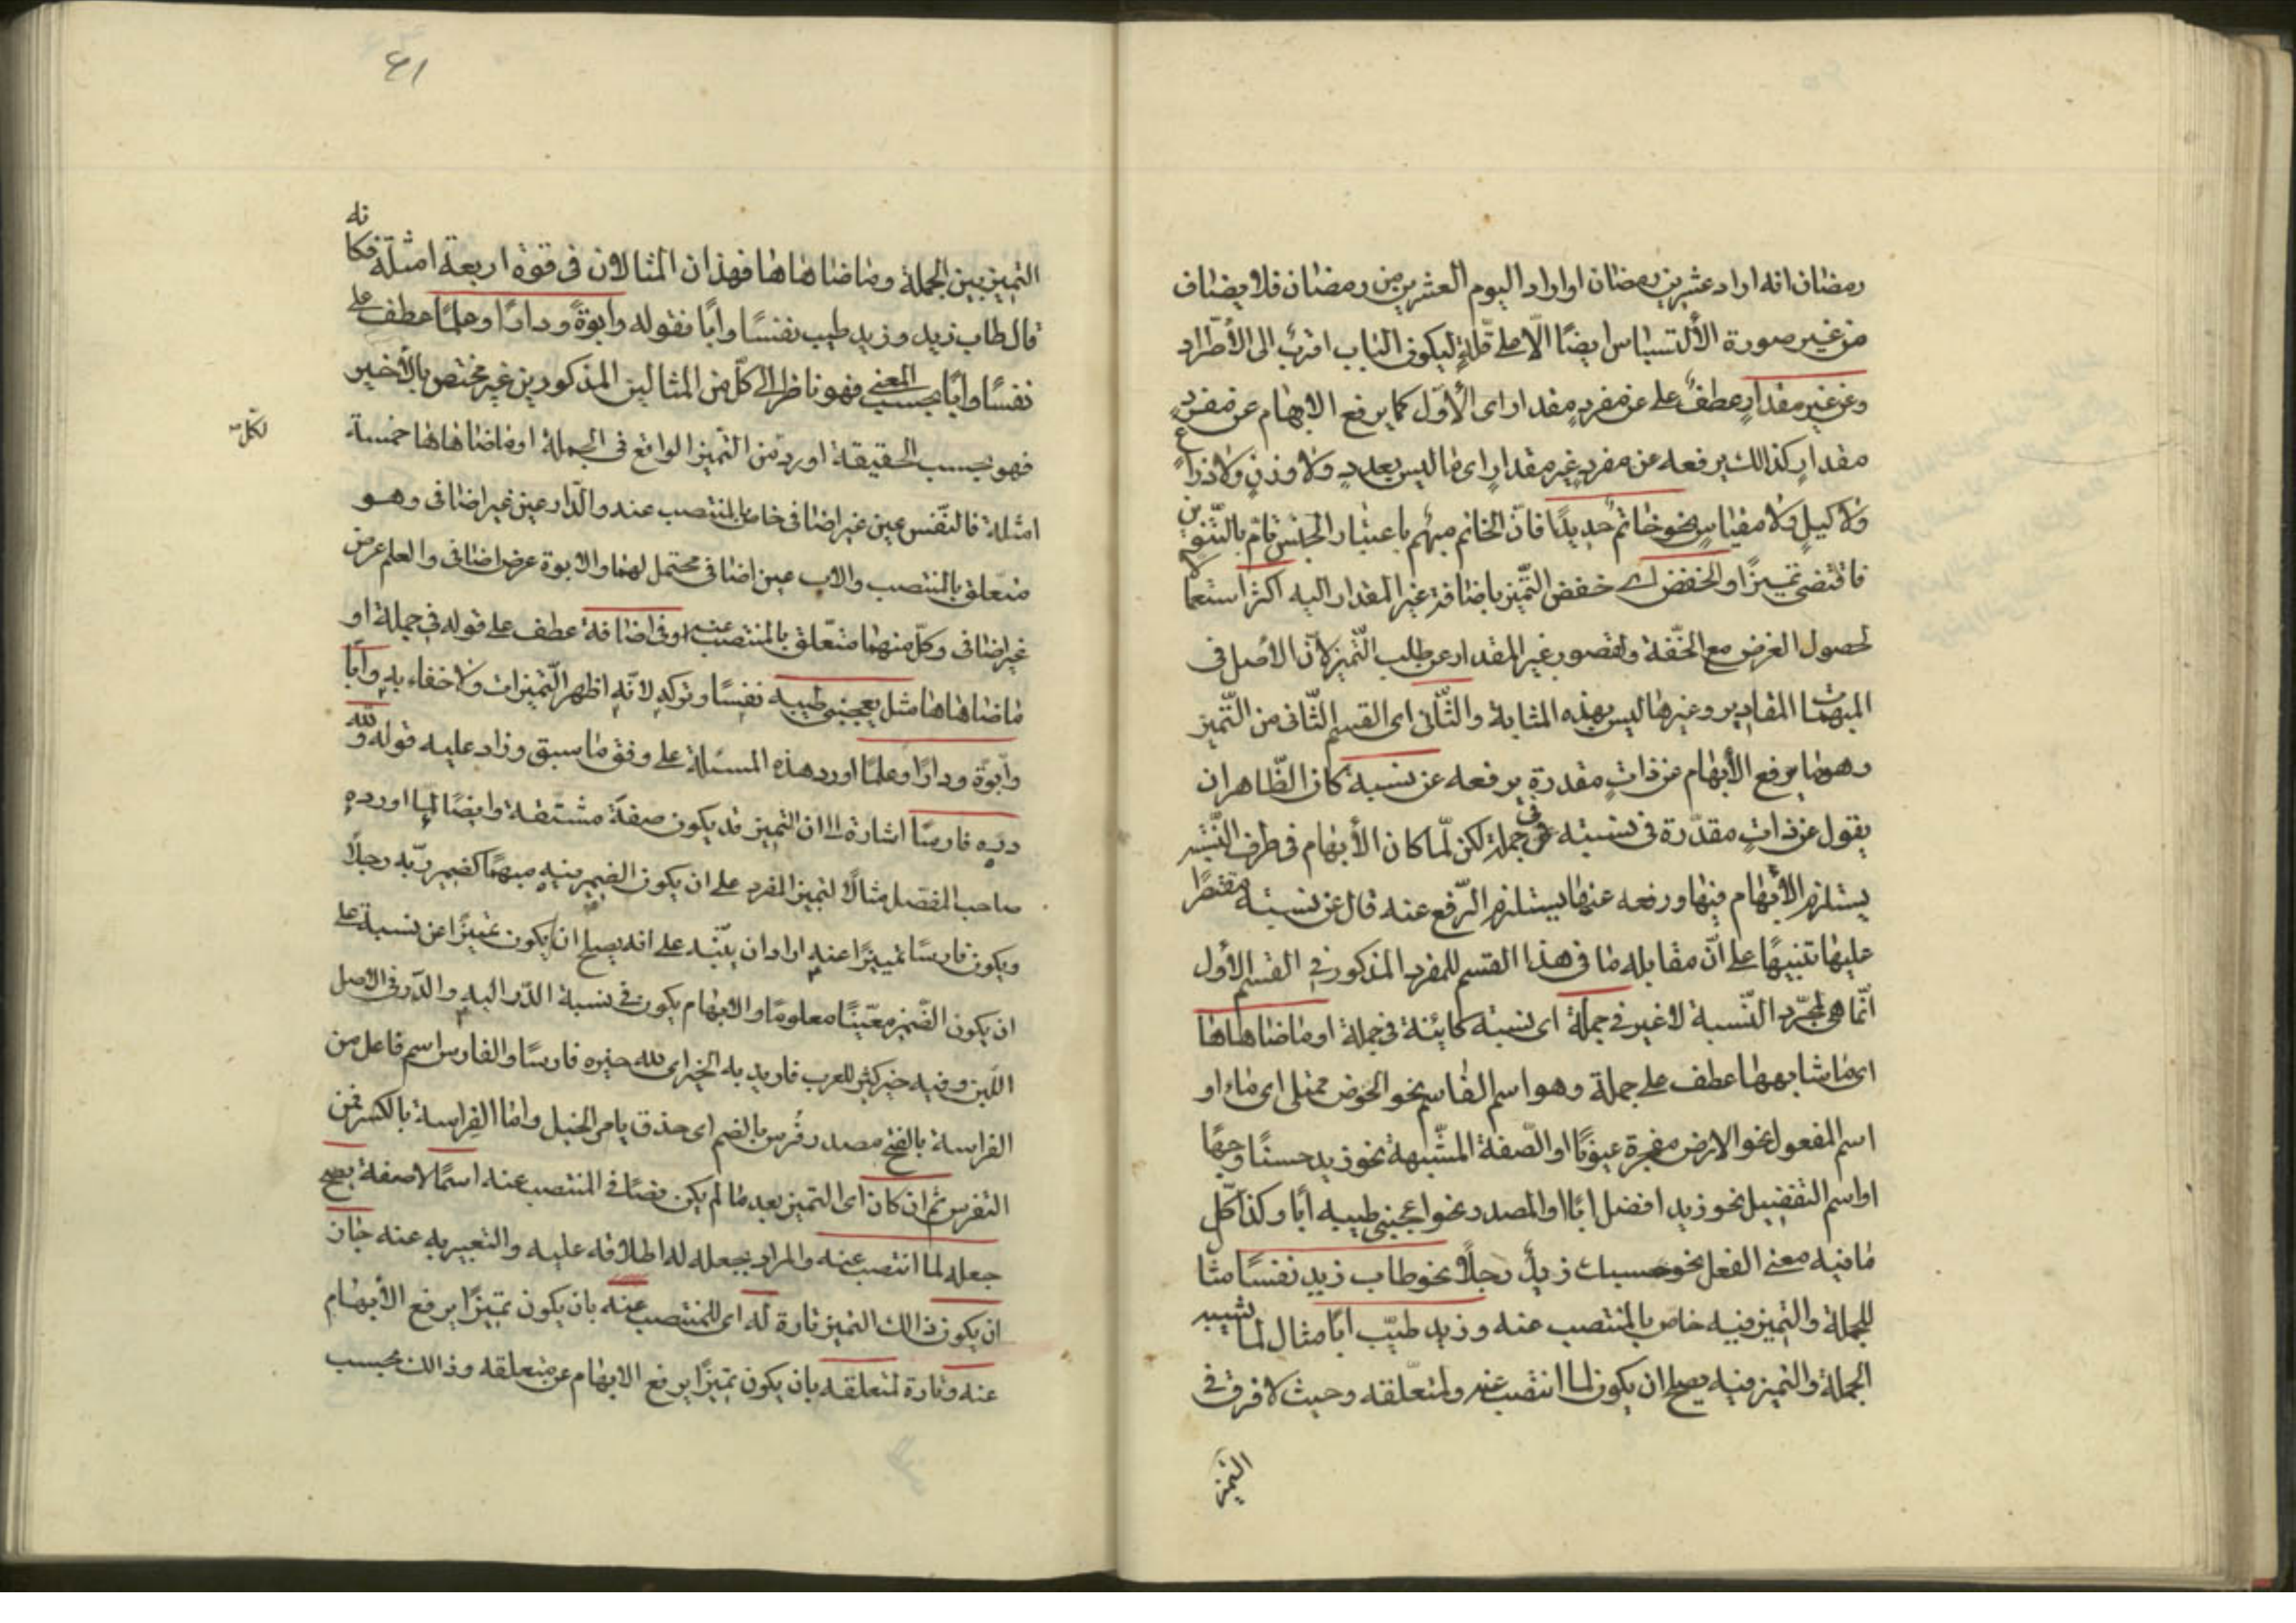 رمضان انه اراد عشرين رمضان او اراد اليوم العشرين من رمضان فلا يضاف
من غير صورة الألتسباس ايضًا الّا على قلّةٍ ليكون الباب اقرب الى الأطّراد
وعن غير مقدارٍ عطفٌ على عن مفردٍ مقدار اى الأوّل كما يرفع الابهام عن مفردٍ
مقدارٍ كذالك يرفعه عن مفردٍ غير مقدارٍ اى ما ليس بعددٍ ولا وزنٍ ولا ذراعٍ
ولا كيلٍ ولا مقياسٍ نحو خاتمٌ حديدًا فانّ الخاتم مبهم باعتبار الجنس تامّ بالتّنوين
فاقتضى تمييزًا والخفض اى خفض التّميز باضافة غير المقدار اليه اكثر استعمالا
لحصول الغرض مع الخفّة ولقصور غير المقدار عن طلب التّميز لانّ الأصل فى
المبهمات المقادير وغيرها ليس بهذه المثابة والثّانى اى القسم الثّانى من التّميز
وهو ما يرفع الأبهام عن ذاتٍ مقدرةٍ يرفعه عن نسبة كان الظّاهر ان
يقول عن ذاتٍ مقدّرة فى نسبته فى جملة لكن لمّا كان الأبهام فى طرف النّسبة
يستلزم الأبهام فيها ورفعه عنها يستلزم الرّفع عنه قال عن نسبته مقتصرًا
عليها تنبيهًا على انّ مقابله ما فى هذا القسم للمفرد المذكور فى القسم الأول
انّما هى لمجرّد النّسبة لا غير فى جملة اى نسبته كاينة فى جملة او ما ضاهاها
اى ما شابهها عطف على جملة وهو اسم الفاسم نحو الحوض ممتلى اى ماء او
اسم المفعول نحو الارض مفجرة عيونًا او الصّفة المشّبهة نحو زيد حسنًا وجهًا
او اسم التفضيل نحو زيد افضل ابًا او المصدر نحو اعجبنى طيبه أبا وكذا كلّ
ما فيه معنى الفعل نحو حسبك زيدٌ رجلًا نحو طاب زيد نفسًا مثا
للجملة والتميز فيه خاص بالمنتصب عنه وزيد طيّب ابًا مثال لما يشبه
الجملة والتميز فيه يصلح ان يكون لما انتصب عنه ولمتعلّقه وحيث لا فرق فى
التميز
٤١
التميز بين الجملة وما ضاهاها فهذان المثالان فى قوة اربعة امثلة فكانه
قال طاب زيد وزيد طيب نفسًا وابًا فقوله وابوةً ودارًا وعلمًا عطف على
نفسًا وابًا بحسب المعنى فهو ناظر الى كلّ من المثالين المذكورين غير مختص بالأخير
فهو بحسب الحقيقة اورد من التميز الواقع فى الجملة او ما ضاهاها خمسة
لكلّ
امثلة فالنّفس عين غير اضافى خاص بالمنتصب عنه والدّار عين غير اضافى وهو
متعلق بالمنتصب والاب عين اضافى محتمل لهما والابوة عرض اضافى والعلم عرض
غير اضافى وكلّ منهما متعلّق بالمنتصب عنه او فى اضافة عطف على قوله فى جملة او
ما ضاهاها مثل يعجبنى طيبه نفسًا وتركه لانّه اظهر التّميزات ولا خفاء به وابا
وابوّة ودارًا وعلمًا اورد هذه المسئلة على وفق ما سبق وزاد عليه قوله ولله
درّه فارسًا اشارة الى ان التميز قد يكون صفة مشتقة وايضًا لمّا اورده
صاحب المفصل مثالًا لتميز المفرد على ان يكون الضمير فيه مبهمًا كضمير ربّه رجلًا
ويكون فارسًا تمييزًا عنه اراد ان ينّبه على انه يصلح ان يكون تميزًا عن نسبة على
ان يكون الضّمير معّينًا معلومًا والابهام يكون فى نسبة الدّر اليه والدّر فى الاصل
اللّبن وفيه خير كثير للعرب فاريد به الخير اى لله خيره فارسًا والفارس اسم فاعل من
الفراسة بالفتح مصدر فرُس بالضم اى حذق بامر الخيل وامّا الفراسة بالكسر فمن
التفرس ثم ان كان اى التميز بعد ما لم يكن نصًا فى المنتصب عنه اسمًا لا صفة يصح
جعله لما انتصب عنه والمراد بجعله له اطلاقه عليه والتعبير به عنه جاز
ان يكون ذالك التميز تارة له اى للمنتصب عنه بان يكون تميزًا يرفع الأبهام
عنه وتارة لمتعلقه بان يكون تميزًا يرفع الابهام عن متعلقه وذالك بحسب